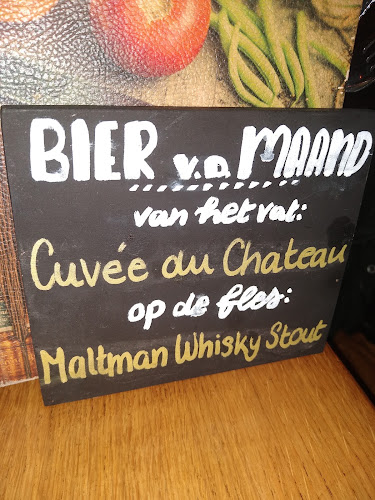 BIER v.d. MAAND
van het vat:
Cuvée du Chateau
op de fles:
Maltman Whisky Stout